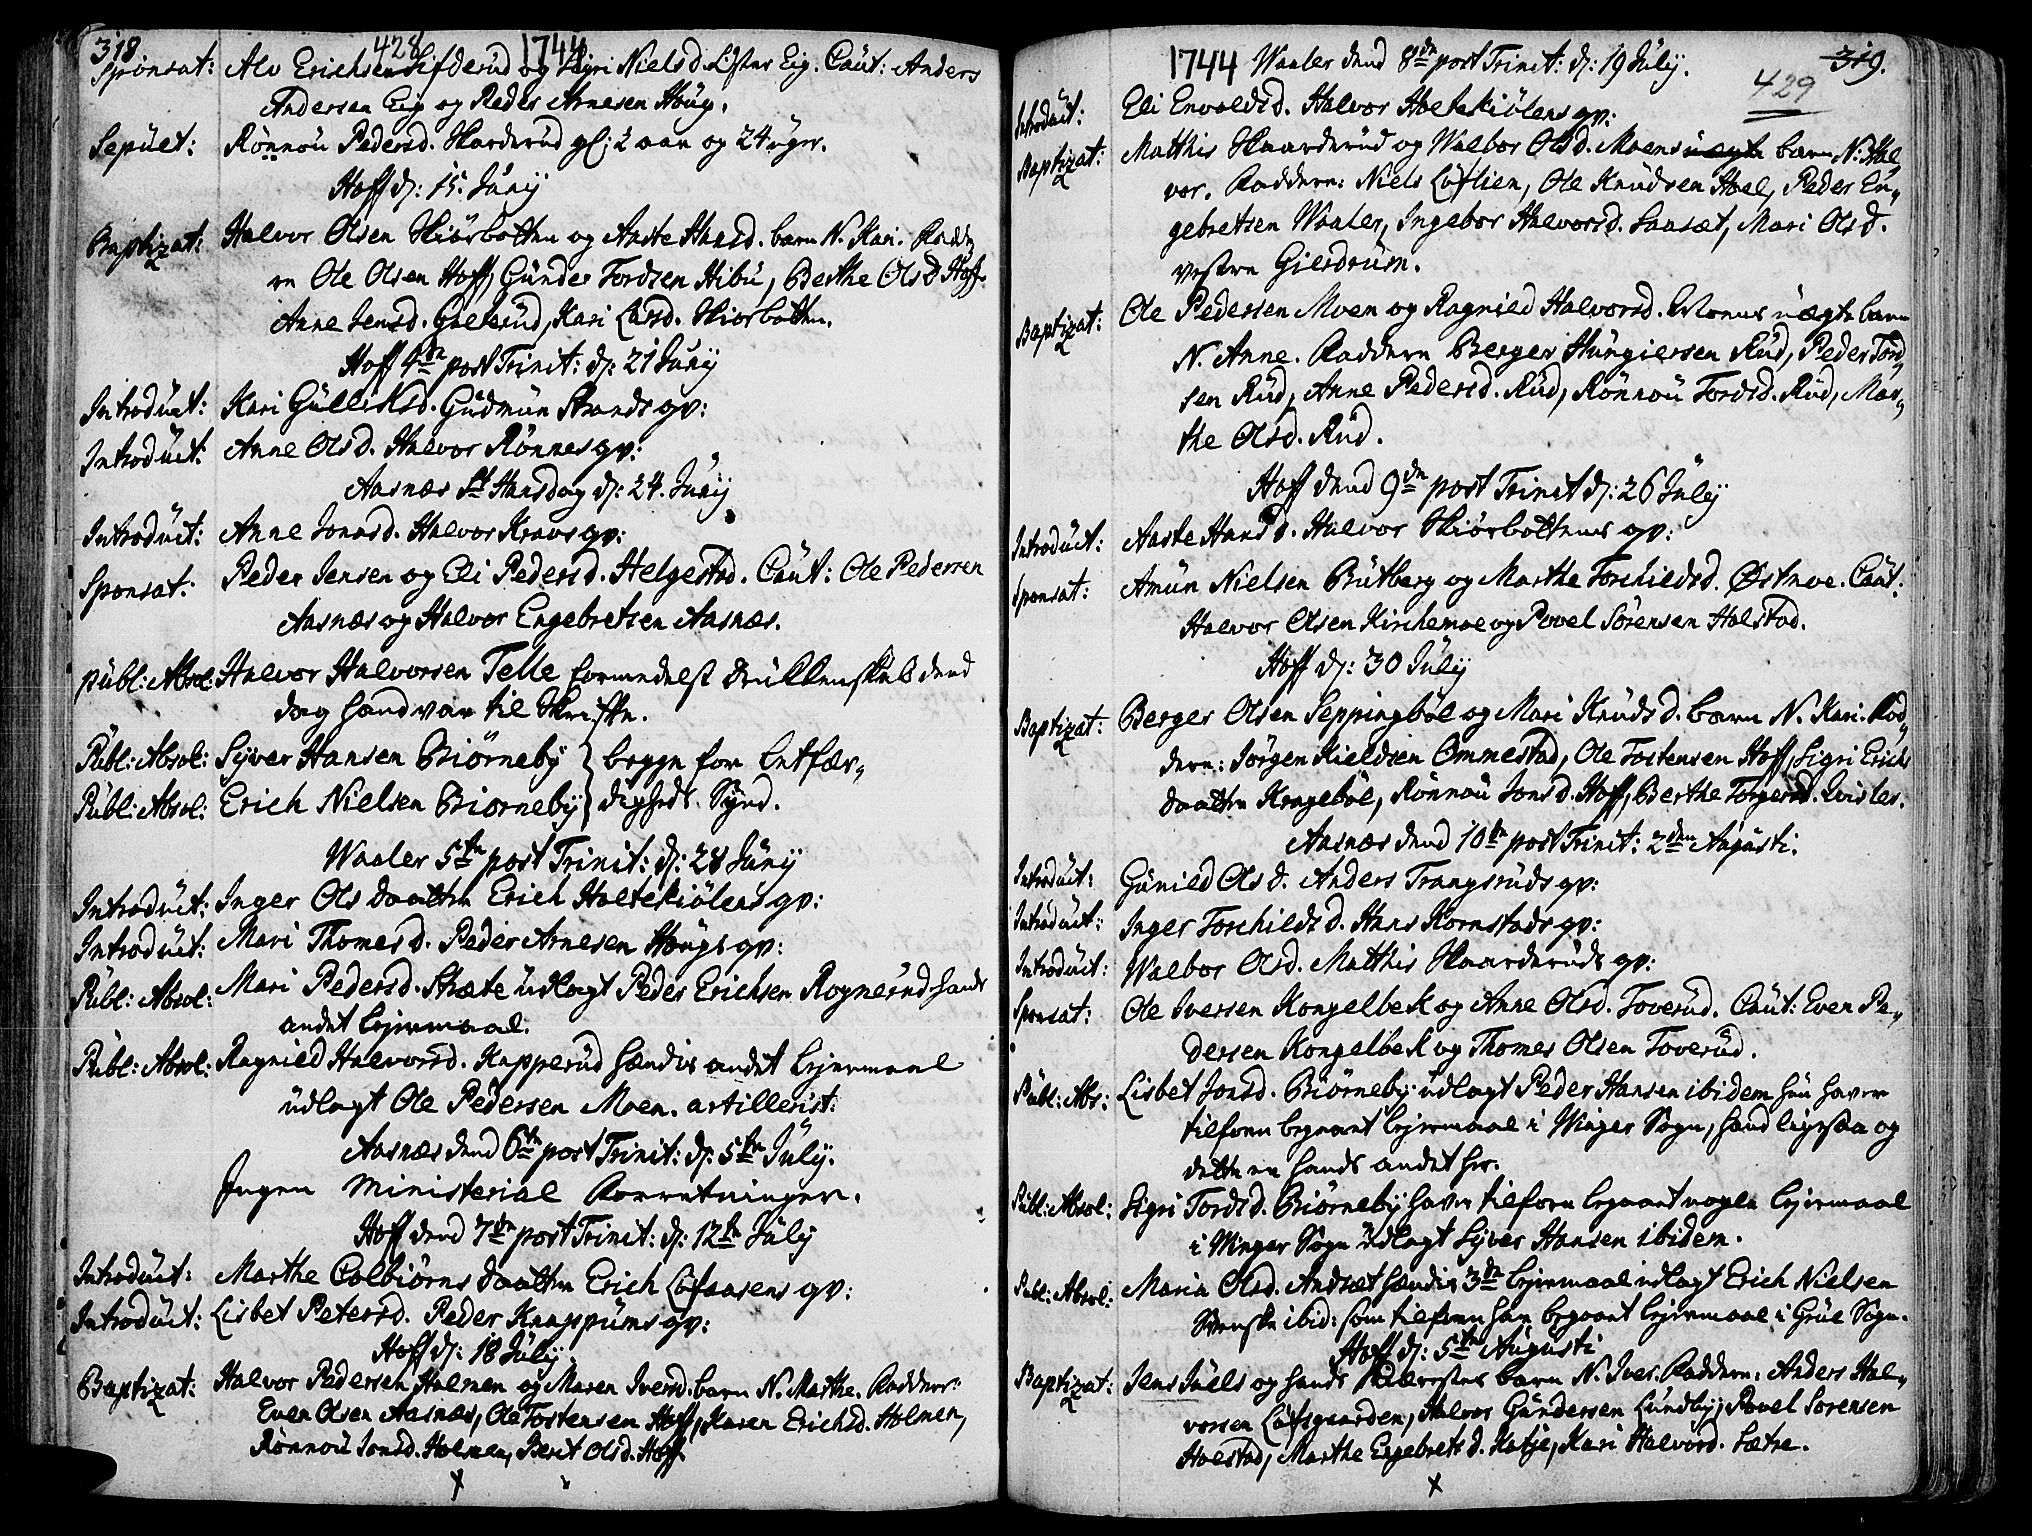 318
428
1744
Sponsat: Alv Erichsen Sifderud og Sigri Nielsd. Løster Eig. Caut: Anders
Andersen Eig og Peder Arnesen Houg.
Sepult: Rønnou Pedersd. Skarderud gl: 2 aar og 24 uger.
Hoff d: 15 Junij
Baptizat: Halvor Olsen Skiørbotten og Aaste Hansd. barn N. Kari. Fadde
re Ole Olsen Hoff, Gunder Tordsen Hibu, Berthe Olsd Hoff.
Anne Jensd. Gulerud, Kari Larsd. Skiorbotten.
Hoff 4de post Trinit: d: 21 Junij
Introduct: Kari Gulliksd. Gudmun Strands qv:
Introduct: Anne Olsd. Halvor Rønnes qv:
Aasnæs St Hansdag d: 24. Junij
Introduct: Anne Jonsd. Halvor Kravs qv:
Sponsat: Peder Jensen og Eli Pedersd. Helgestad. Caut: Ole Pedersen
Aasnæs og Halvor Engebretsen Aasnæs.
publ: Absol: Halvor Halvorsen Telle formedelst drukkenskab dend
dag hand var til Skrifte.
Publ: Absol: Syver Hansen Biørneby } begge for Letfær„
Publ: Absol: Erich Nielsen Biorneby } digheds Synd.
Waaler 5te post Trinit: d: 28 Junij
Introduct: Inger Ols daatter Erich Holtekiølens qv:
Introduct: Mari Thomesd. Peder Arnesen Hougs qv:
Publ: Absol: Mari Pedersd. Skæte udlagt Peder Erichsen Rognerud hands
andet Leyermaal.
Publ: Absol: Ragnild Halvorsd. Kapperud hændis andet Leyermaal
udlagt Ole Pedersen Moen. artillerist:
Aasnæs dend 6te post Trinit: d: 5te July.
Ingen Ministerial Forretninger.
Hoff dend 7de post Trinit: d: 12te July
Introduct: Marthe Colbiørns daatter Erich Lofaasens qv:
Introduct: Lisbet Petersd. Peder Knappums qv:
Hoff d: 18 July.
Baptizat: Halvor Pedersen Holmen og Maren Iversd. barn N. Marthe. Faddere:
Even Olsen Aasnæs, Ole Tostensen Hoff, Karen Erichsd. Holmen,
Rønnou Jonsd. Holmen, Berit Olsd. Hoff.
1744 Waaler dend 8de post Trinit: d: 19 July.
319.
429
Introduct: Eli Envoldsd. Halvor Holtekiølens qv:
Baptizat: Matthis Skaarderud og Walbor Olsd. Moens uægte barn N: Hal
vor. Faddere: Niels Løflien, Ole Knudsen Hoel, Peder En„
gebretsen Waaler, Ingebor Halvorsd. Sansæt, Mari Olsd.
vestre Gilsdrum.
Baptizat: Ole Pedersen Moen og Ragnild Halvorsd. Moens uægte barn
N. Anne. Faddere Berger Hungiersen Rud, Peder Tord„
sen Rud, Anne Pedersd. Rud, Rønnou Tordsd. Rud, Mar„
the Olsd. Rud.
Hoff dend 9de post Trinit d: 26 July
Introduct: Aaste Hansd. Halvor Skiørbottens qv:
Sponsat: Amun Nielsen Brutberg og Marthe Torchildsd. Østmoe. Caut:
Halvor Olsen Kirchemoe og Povel Sørensen Holstad.
Hoff d: 30 July
Baptizat: Berger Olsen Seppingbøl og Mari Knudsd. barn N. Kari. Fad„
dere: Jørgen Kieldsen Ommestad, Ole Tostensen Hoff, Sigri Erichs
daatter Kongebøl, Rønnou Jonsd. Hoff, Berthe Torgersd. Qvisler.
Aasnæs dend 10de post Trinit: 2den Augusti.
Introduct: Gunild Olsd. Anders Trangsruds qv:
Introduct: Inger Torchildsd. Hans Kornstads qv:
Introduct: Walbor Olsd. Matthis Skaarderuds qv:
Sponsat: Ole Iversen Kongelbek og Anne Olsd. Toverud. Caut: Even Pe„
dersen Kongelbek og Thomes Olsen Toverud.
Publ: Abs: Lisbet Jonsd. Biørneby udlagt Peder Hansen ibidem hun haver
tilforn begaaet Leyermaal i Winger Sogn, hand ligesaa og
dette er hands andet her.
Publ: Absol: Sigri Tordsd. Biørneby haver tilforn begaaet nogle Leyermaal
i Winger Sogn udlagt Syver Hansen ibidem.
Publ: Absol: Maria Olsd. Andræt hændis 3de Leyermaal udlagt Erich Nielsen
Svenske ibid: som tilforn har begaaet Leyermaal i Grue Sogn.
Hoff d: 5te Augusti
Baptizat: Jens Juels og hands Kiærestes barn N. Iver. Faddere: Anders Hal„
vorsen Løfsgaarden, Halvor Gundersen Lundby, Povel Sorensen
Holstad, Marthe Engebretsd. Katje, Kari Halvord. Sætre.